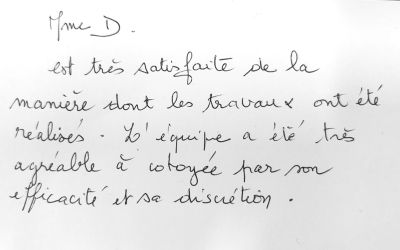 Mme D.
est très satisfaite de la
manière dont les travaux ont été
réalisés. L'équipe a été très
agréable à cotoyée par son
efficacité et sa discrétion.